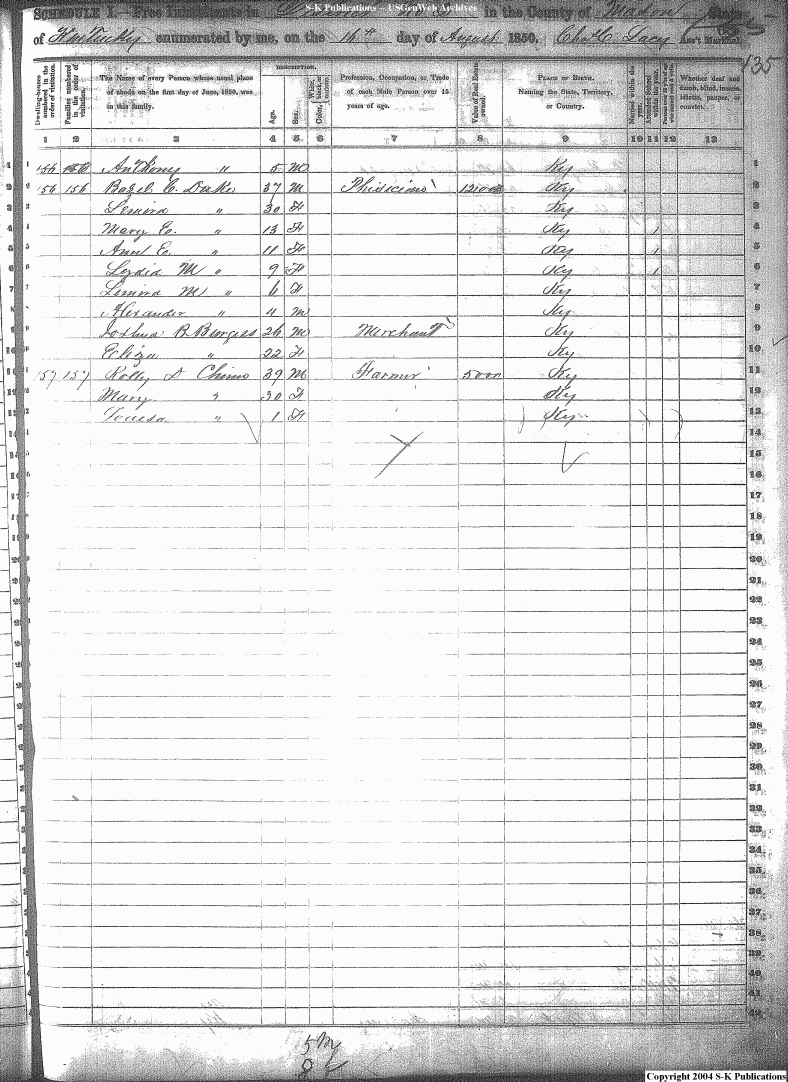 S-K Publications – USGenWeb Archives
SCHEDULE I.—Free Inhabitants in in the County of State
of Kentucky enumerated by me, on the 16th day of August 1850. Chs C. Lacy Ass't Marshal.
135
Dwelling-houses numbered in the order of visitation.
Families numbered in the order of visitation.
The Name of every Person whose usual place of abode on the first day of June, 1850, was in this family.
DESCRIPTION.
Age.
Sex.
White, black, or mulatto.
Color,
Profession, Occupation, or Trade of each Male Person over 15 years of age.
Value of Real Estate owned.
PLACE OF BIRTH.
Naming the State, Territory, or Country.
Married within the year.
Attended School within the year.
Whether deaf and dumb, blind, insane, idiotic, pauper, or convict.
1 2 3 4 5 6 7 8 9 10 11 12 13
1 156 156 Anthony " 5 M Ky 1
2 156 156 Bazel C. Duke 37 M Phisician 12100 Ky 2
3 " 30 F Ky 3
4 Mary E. " 13 F Ky 1 4
5 Ann E. " 11 F Ky 1 5
6 Lydia M " 9 F Ky 1 6
7 M " 6 F Ky 7
8 Alexander " 4 M Ky 8
9 Joshua B Burgess 26 M Merchant Ky 9
10 Eliza " 22 F Ky 10
11 157 157 Kolly D 39 M Farmer 5000 Ky 11
12 Mary " 30 F Ky 12
13 Louisa " 1 F Ky 13
14
15
16
17
18
19
20
21
22
23
24
25
26
27
28
29
30
31
32
33
34
35
36
37
38
39
40
41
42
5 M
8
Copyright 2004 S-K Publications